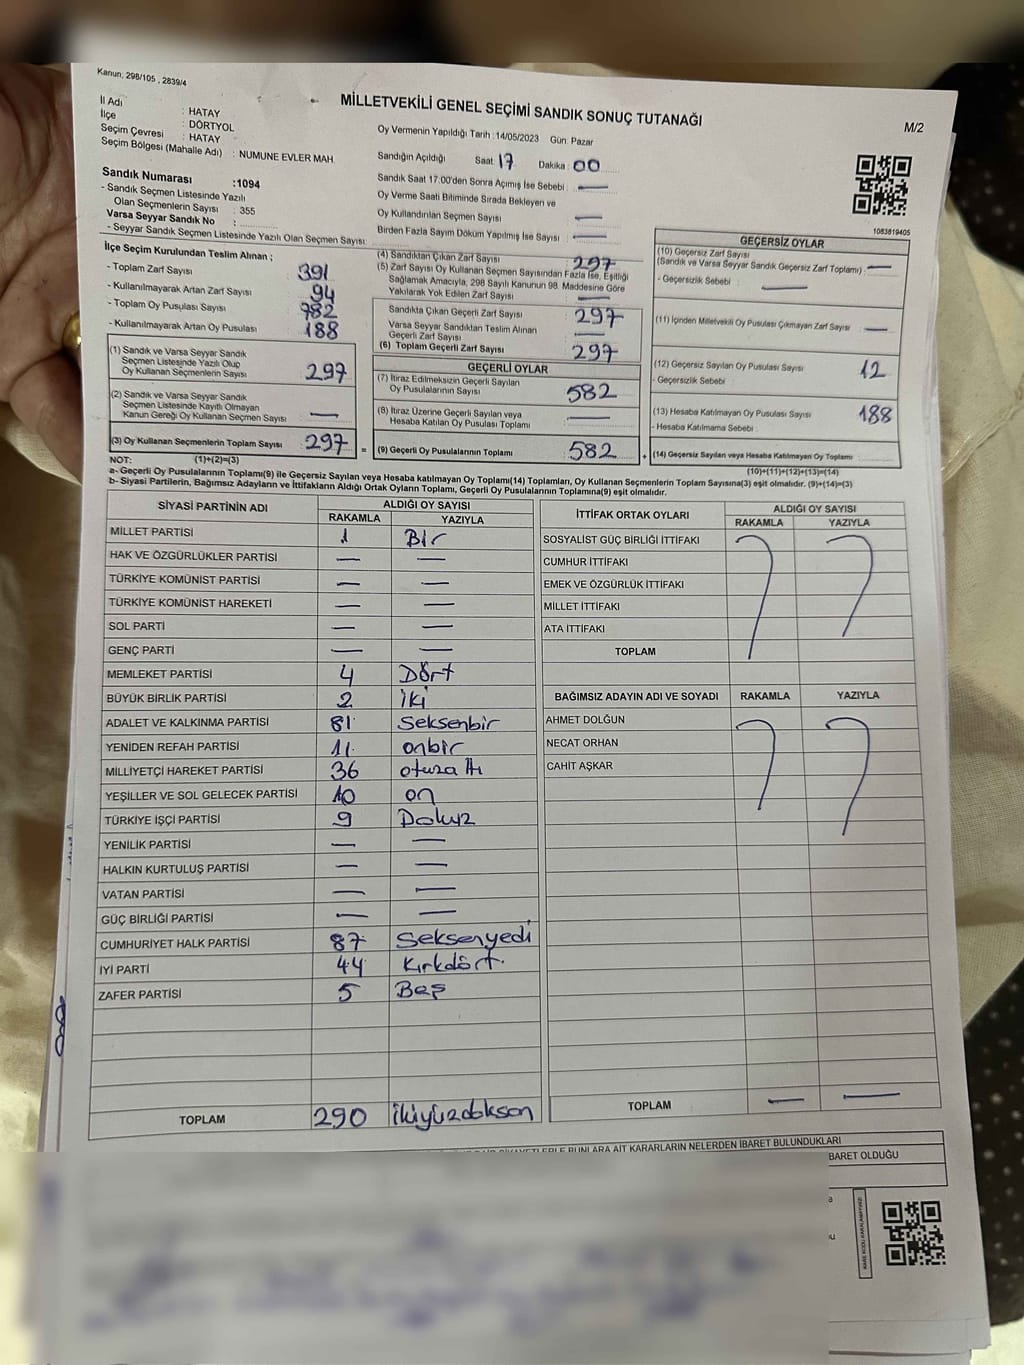 Kanun; 298/105 , 2839/4
MİLLETVEKİLİ GENEL SEÇİMİ SANDIK SONUÇ TUTANAĞI
M/2
İl Adı : HATAY
İlçe : DÖRTYOL
Seçim Çevresi : HATAY
Seçim Bölgesi (Mahalle Adı) : NUMUNE EVLER MAH.
Oy Vermenin Yapıldığı Tarih : 14/05/2023 Gün: Pazar
Sandığın Açıldığı Saat 17 Dakika : 00
Sandık Saat 17.00'den Sonra Açımış İse Sebebi : —
Oy Verme Saati Bitiminde Sırada Bekleyen ve
Oy Kullandırılan Seçmen Sayısı —
Birden Fazla Sayım Döküm Yapılmış İse Sayısı : —
Sandık Numarası :1094
- Sandık Seçmen Listesinde Yazılı
Olan Seçmenlerin Sayısı : 355
Varsa Seyyar Sandık No :
- Seyyar Sandık Seçmen Listesinde Yazılı Olan Seçmen Sayısı:
1083819405
İlçe Seçim Kurulundan Teslim Alınan ;
- Toplam Zarf Sayısı 391
- Kullanılmayarak Artan Zarf Sayısı 94
- Toplam Oy Pusulası Sayısı 782
- Kullanılmayarak Artan Oy Pusulası 188
(1) Sandık ve Varsa Seyyar Sandık
Seçmen Listesinde Yazılı Olup
Oy Kullanan Seçmenlerin Sayısı 297
(2) Sandık ve Varsa Seyyar Sandık
Seçmen Listesinde Kayıtlı Olmayan
Kanun Gereği Oy Kullanan Seçmen Sayısı —
(3) Oy Kullanan Seçmenlerin Toplam Sayısı 297
(4) Sandıktan Çıkan Zarf Sayısı 297
(5) Zarf Sayısı Oy Kullanan Seçmen Sayısından Fazla İse, Eşitliği
Sağlamak Amacıyla, 298 Sayılı Kanunun 98. Maddesine Göre
Yakılarak Yok Edilen Zarf Sayısı —
Sandıkta Çıkan Geçerli Zarf Sayısı 297
Varsa Seyyar Sandıktan Teslim Alınan
Geçerli Zarf Sayısı —
(6) Toplam Geçerli Zarf Sayısı 297
GEÇERLİ OYLAR
(7) İtiraz Edilmeksizin Geçerli Sayılan
Oy Pusulalarının Sayısı 582
(8) İtiraz Üzerine Geçerli Sayılan veya
Hesaba Katılan Oy Pusulası Toplamı —
= (9) Geçerli Oy Pusulalarının Toplamı 582 +
GEÇERSİZ OYLAR
(10) Geçersiz Zarf Sayısı
(Sandık ve Varsa Seyyar Sandık Geçersiz Zarf Toplamı) —
- Geçersizlik Sebebi : —
(11) İçinden Milletvekili Oy Pusulası Çıkmayan Zarf Sayısı —
(12) Geçersiz Sayılan Oy Pusulası Sayısı 12
- Geçersizlik Sebebi :
(13) Hesaba Katılmayan Oy Pusulası Sayısı 188
- Hesaba Katılmama Sebebi :
(14) Geçersiz Sayılan veya Hesaba Katılmayan Oy Toplamı
NOT: (1)+(2)=(3) (10)+(11)+(12)+(13)=(14)
a- Geçerli Oy Pusulalarının Toplamı(9) ile Geçersiz Sayılan veya Hesaba katılmayan Oy Toplamı(14) Toplamları, Oy Kullanan Seçmenlerin Toplam Sayısına(3) eşit olmalıdır. (9)+(14)=(3)
b- Siyasi Partilerin, Bağımsız Adayların ve İttifakların Aldığı Ortak Oyların Toplamı, Geçerli Oy Pusulalarının Toplamına(9) eşit olmalıdır.
SİYASİ PARTİNİN ADI ALDIĞI OY SAYISI
RAKAMLA YAZIYLA
MİLLET PARTİSİ 1 Bir
HAK VE ÖZGÜRLÜKLER PARTİSİ — —
TÜRKİYE KOMÜNİST PARTİSİ — —
TÜRKİYE KOMÜNİST HAREKETİ — —
SOL PARTİ — —
GENÇ PARTİ — —
MEMLEKET PARTİSİ 4 Dört
BÜYÜK BİRLİK PARTİSİ 2 İki
ADALET VE KALKINMA PARTİSİ 81 Seksenbir
YENİDEN REFAH PARTİSİ 11 onbir
MİLLİYETÇİ HAREKET PARTİSİ 36 otuzaltı
YEŞİLLER VE SOL GELECEK PARTİSİ 10 on
TÜRKİYE İŞÇİ PARTİSİ 9 Dokuz
YENİLİK PARTİSİ — —
HALKIN KURTULUŞ PARTİSİ — —
VATAN PARTİSİ — —
GÜÇ BİRLİĞİ PARTİSİ — —
CUMHURİYET HALK PARTİSİ 87 Seksenyedi
İYİ PARTİ 44 Kırkdört.
ZAFER PARTİSİ 5 Beş
TOPLAM 290 ikiyüzdokson
İTTİFAK ORTAK OYLARI ALDIĞI OY SAYISI
RAKAMLA YAZIYLA
SOSYALİST GÜÇ BİRLİĞİ İTTİFAKI
CUMHUR İTTİFAKI
EMEK VE ÖZGÜRLÜK İTTİFAKI
MİLLET İTTİFAKI
ATA İTTİFAKI
TOPLAM
BAĞIMSIZ ADAYIN ADI VE SOYADI RAKAMLA YAZIYLA
AHMET DOLĞUN
NECAT ORHAN
CAHİT AŞKAR
TOPLAM — —
BUNLARA AİT KARARLARIN NELERDEN İBARET BULUNDUKLARI
BARET OLDUĞU